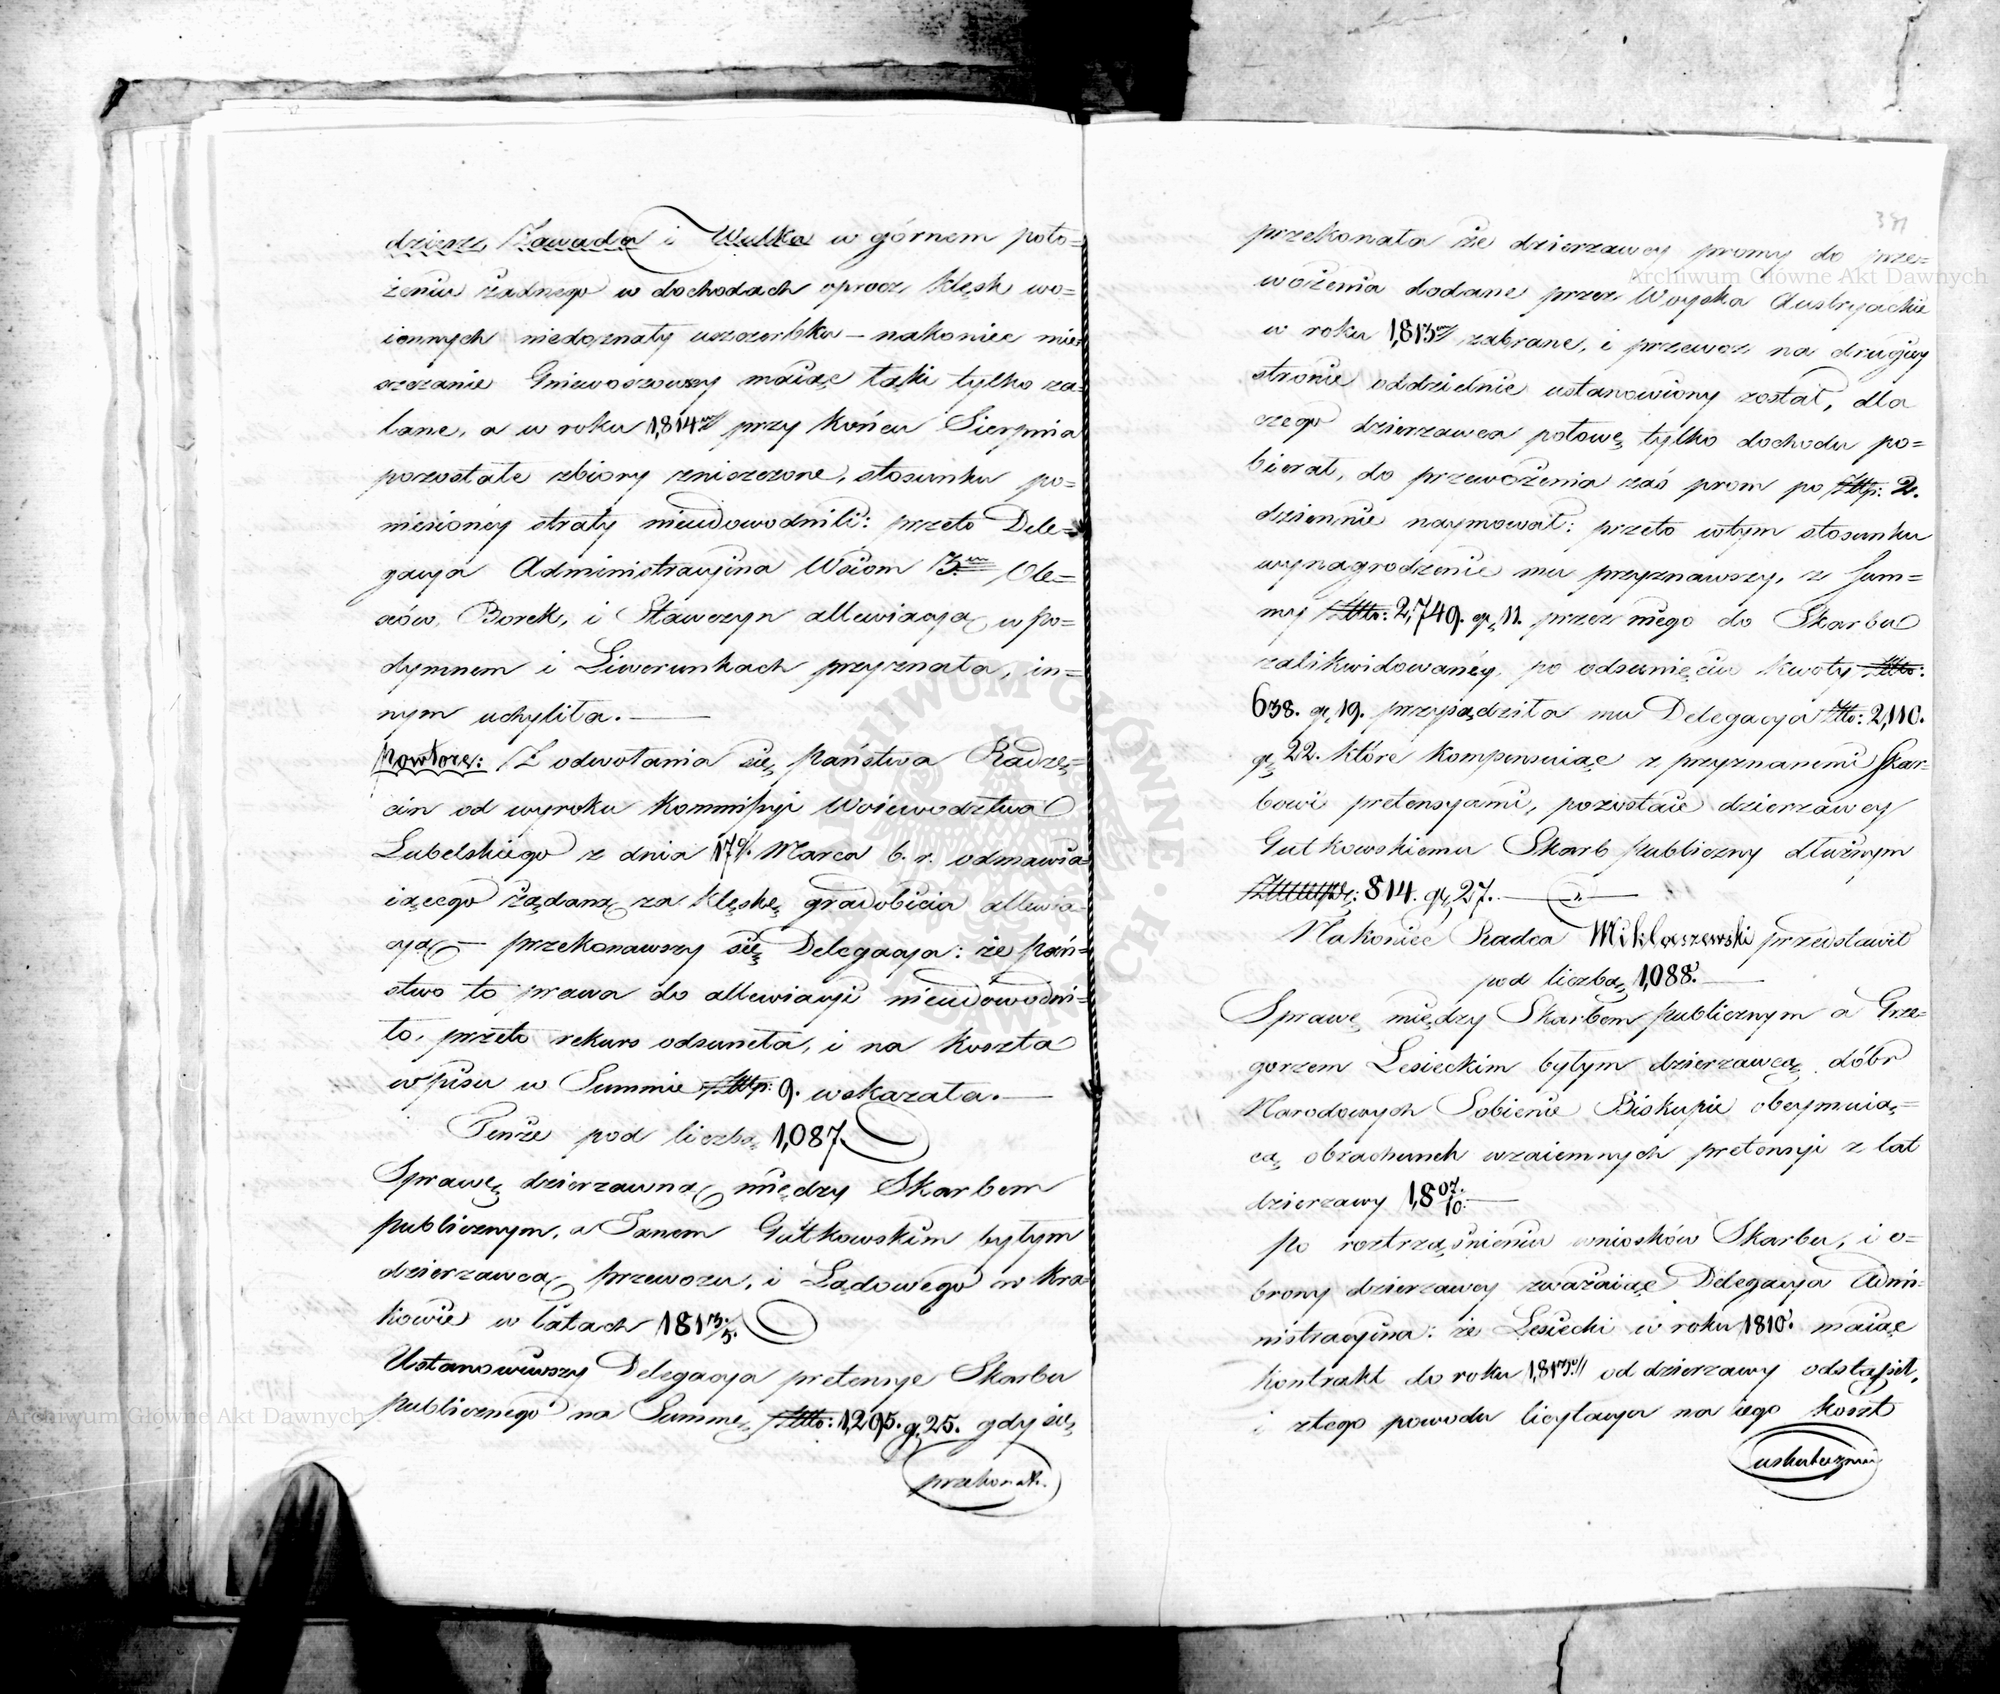 dzierz, Zawada i Wulka w górnem poło=
żeniu żadnego w dochodach oprocz klęsk wo=
iennych niedoznały uszczerbku – nakoniec mie=
szczanie Gniewoszowscy maiąc łąki tylko za=
lane, a w roku 1,814ym przy końcu Sierpnia
pozostałe zbiory zniszczone, stosunku po=
niesionéy straty nieudowodnili: przeto Dele=
gacya Administracyina Wsiom 3m Ole=
xów, Borek, i Sławczyn allewiacyą w po=
dymnem i Liwerunkach przyznała, in=
nym uchyliła. —
Powtóre: Z odwołania się Państwa Radzę=
cin od wyroku Kommissyi Woiewodztwa
Lubelskiego z dnia 17o Marca b. r. odmawia=
iącego żądaną za klęskę gradobicia allewia=
cyą – przekonawszy się Delegacya: że Pań=
stwo to prawa do allewiacyi nieudowodni=
ło, przeto rekurs odsunęła, i na koszta
wpisu w Summie Złtp: 9. wskazała. —
Tenże pod liczbą 1,087.
Sprawę dzierzawną między Skarbem
publicznym, a Janem Gutkowskim byłym
dzierzawcą przewozu, i Lądowego w Kra=
kowie w latach 1813/5.
Ustanowiwszy Delegacya pretensye Skarbu
publicznego na Summę Złto: 1,295. g. 25. gdy się
przekonała
391
przekonała że dzierzawcy promy do prze=
wożenia dodane przez Woyska Austryackie
w roku 1,813ym zabrane, i przewoz na drugiey
stronie oddzielnie ustanowiony został, dla
czego dzierzawca połowę tylko dochodu po=
bierał, do przewożenia zaś prom po Złtp: 2.
dziennie naymował: przeto wtym stosunku
wynagrodzenie mu przyznawszy, z Sum=
my Złto: 2,749. g. 11. przez niego do Skarbu
zalikwidowanéy, po odsunięciu kwoty Złto:
638. g. 19. przysądziła mu Delegacya Złto: 2,110.
g. 22. które kompensuiąc z przyznanemi Skar=
bowi pretensyami, pozostaie dzierzawcy
Gutkowskiemu Skarb publiczny dłużnym
814. g. 27. —
Nakoniec Radca Mikloszewski przedstawił
pod liczbą 1,088. —
Sprawę między Skarbem publicznym a Grze=
gorzem Lesieckim byłym dzierzawcą dóbr
Narodowych Sobienie Biskupie obeymuią=
cą obrachunek wzaiemnych pretensyi z lat
dzierzawy 1,807/10. —
Po roztrząśnieniu wniosków Skarbu, i o=
brony dzierzawcy zważaiąc Delegacya Admi=
nistracyina: że Lesiecki w roku 1810. maiąc
kontrakt do roku 1,813 od dzierzawy odstąpił,
i ztego powodu licytacya na iego koszt
uskuteczniona
Archiwum Główne Akt Dawnych
Archiwum Główne Akt Dawnych
ARCHIWUM GŁÓWNE AKT DAWNYCH